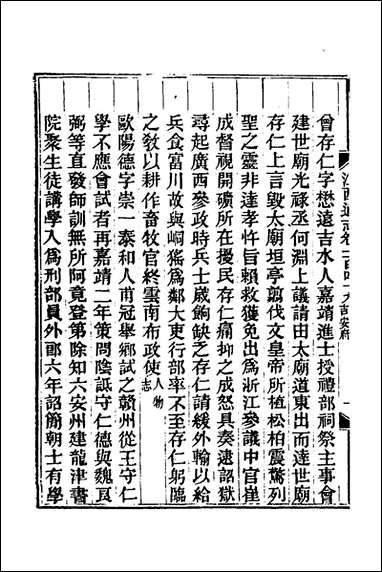 江西通志卷一百四十 吉安府 一
曾存仁字懋遠吉水人嘉靖進士授禮部祠祭主事會
建世廟光祿丞何淵上議請由太廟道東出而達世廟
存仁上言毀太廟垣亭翦伐文皇帝所植松柏震驚列
聖之靈非達孝忤旨賴救獲免出為浙江參議中官崔
成督視開礦所在擾民存仁痛抑之成怒具奏逮詔獄
尋起廣西參政時兵士歲餉缺乏存仁請緩外輸以給
兵食富川故與峒猺為鄰大吏行部率不至存仁躬臨
之教以耕作畜牧官終雲南布政使人物志
歐陽德字崇一泰和人甫冠舉鄉試之贛州從王守仁
學不應會試者再嘉靖二年策問陰詆守仁德與魏良
弼等直發師訓無所阿竟登第除知六安州建龍津書
院聚生徒講學入為刑部員外郎六年詔簡朝士有學